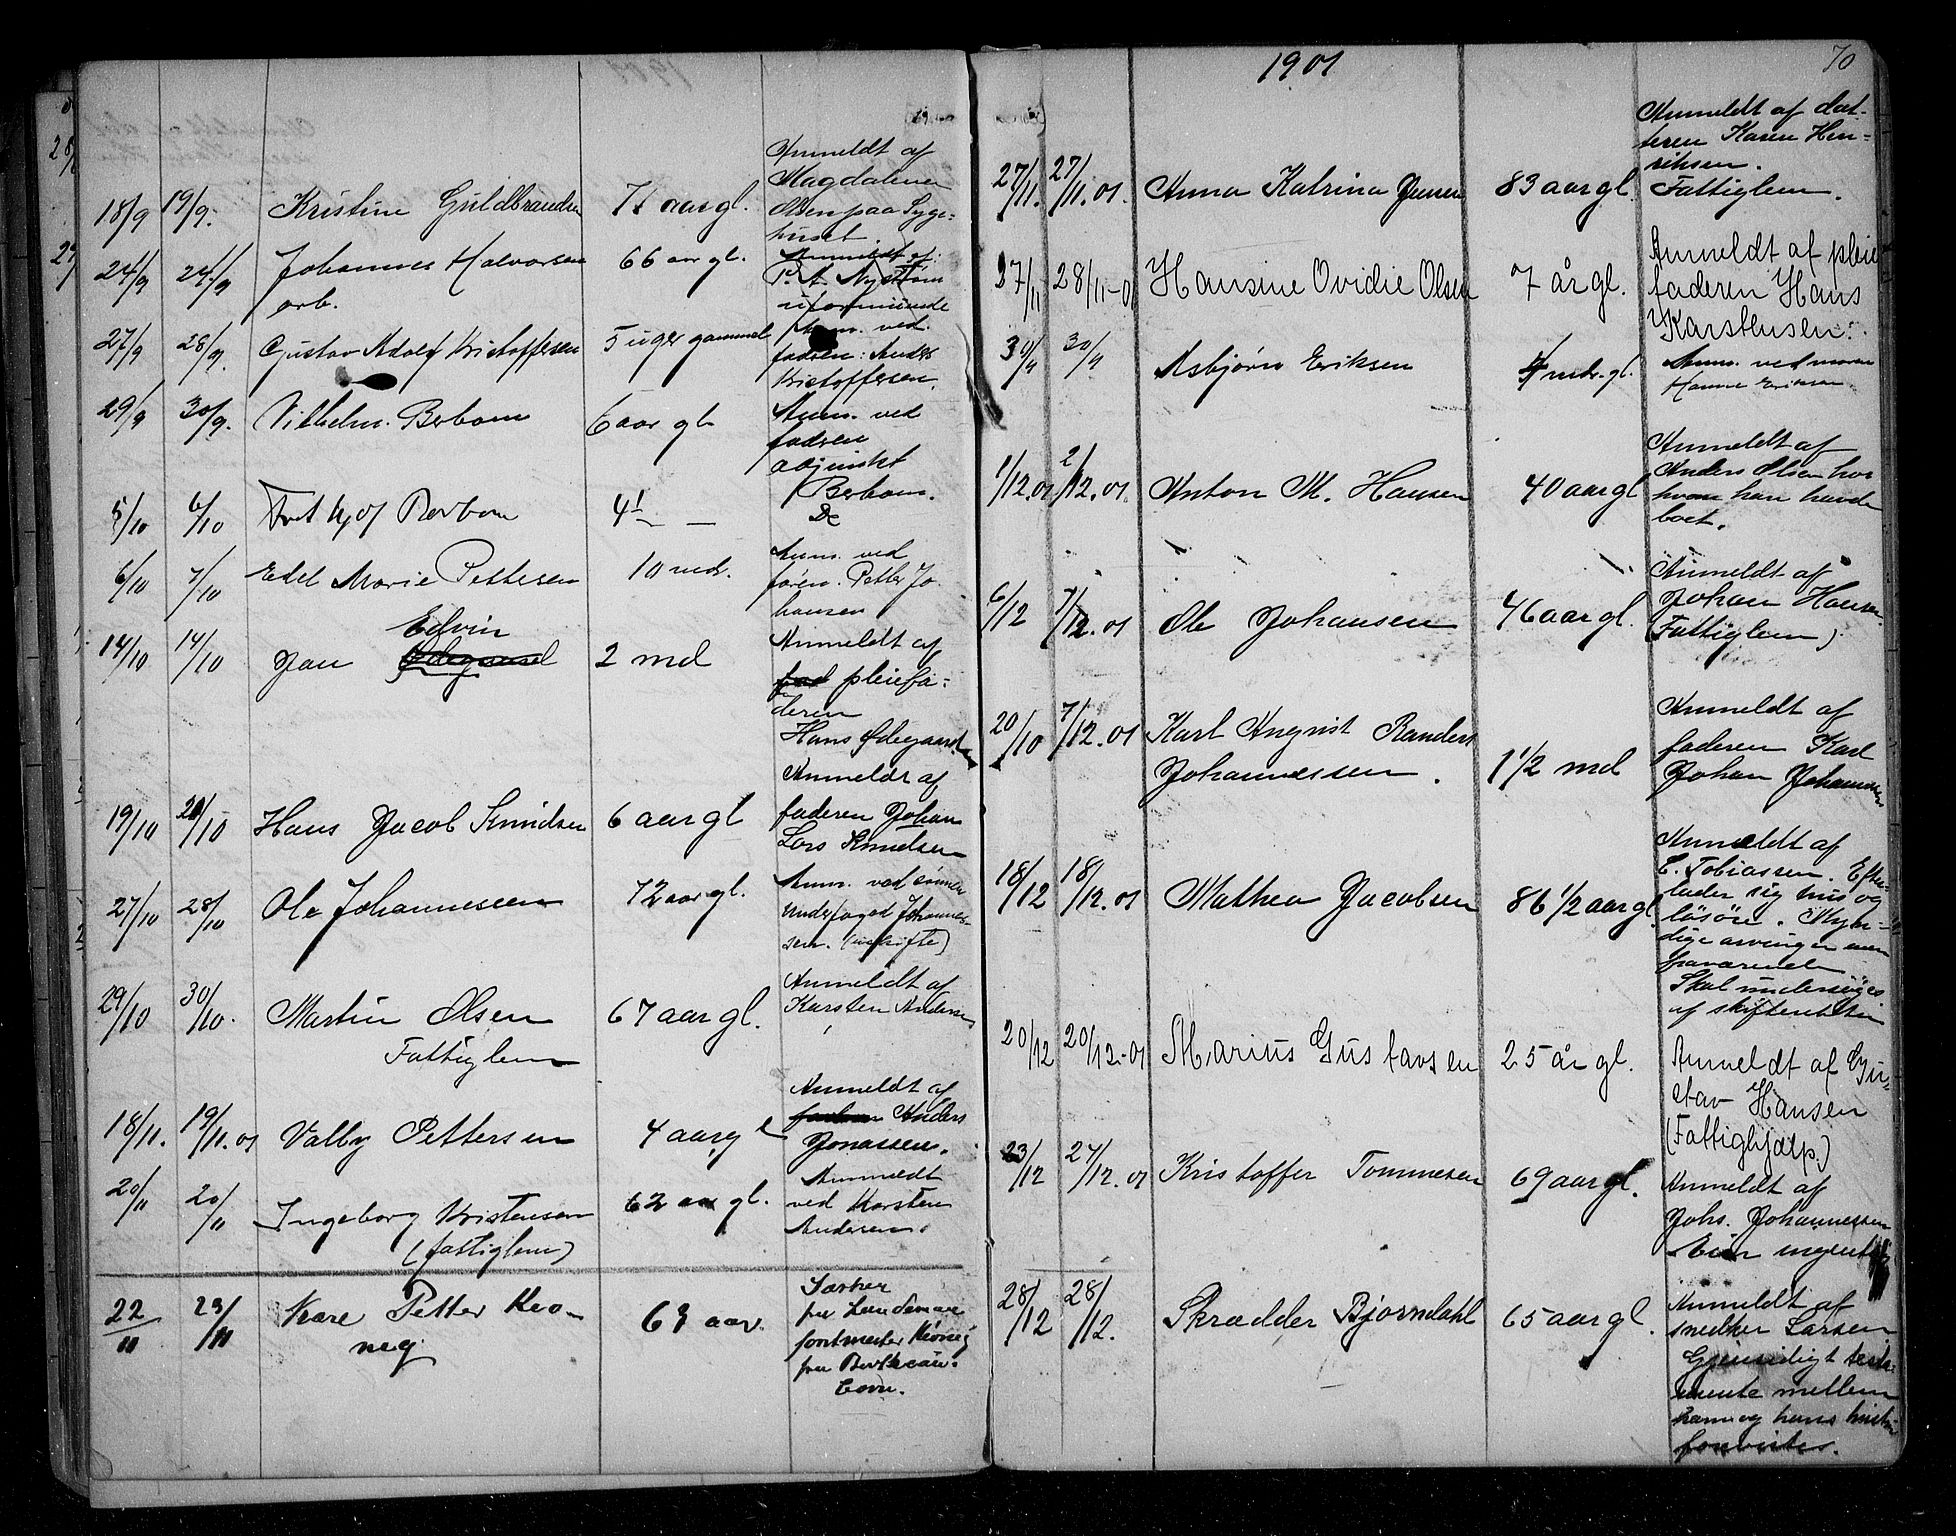 Anmeldt af
Magdalena
18/9 19/9. Kristine Guldbrandsen 71 aar gl. Olsen paa Syge-
huset
24/9 24/9 Johannes Halvorsen 66 aar gl. Anmeldt af:
arb. P. A. Nystrøm
uformuende
27/9 28/9. Gustav Adolf Kristoffersen 5 uger gammel Anm. ved
fadren: Anders
Kristoffersen.
29/9 30/9. Vilhelm Berbom 6 aar gl. Anm. ved
fadren
adjunkt
Berbom.
5/10 6/10 Berbom 4 - Do
6/10 7/10 Edel Marie Pettersen 10 mdr. Anm. ved
Petter Jo
hansen
Edvin
14/10 14/10 Jan Ødegaard 2 md Anmeldt af
fad pleiefa-
deren
Hans Ødegaard
Anmeldt af
19/10 /10 Hans Jacob Knudsen 6 aar gl faderen Johan
Lars Knudsen
27/10 28/10 Ole Johannesen 72 aar gl. Anm. ved sønnen
underfoged Johannes-
sen. (uskifte)
29/10 30/10. Martin Olsen 67 aar gl. Anmeldt af
Fattiglem Karsten Andersen
18/11. 19/11.01 Valby Pettersen 4 aar gl Anmeldt af
faderen Anders
Jonassen.
20/11 20/11 Ingeborg Kristensen 62 aar gl. Anmeldt
(fattiglem) ved Karsten
Andersen.
22/11 23/11 Kare Petter Kro- 63 aar.
neg
1901 70
Anmeldt af dat-
teren Karen Hen-
riksen.
27/11. 27/11.01. Anna Katrina Jensen 83 aar gl. Fattiglem.
27/11 28/11-01 Hansine Ovidie Olsen 7 år gl. Anmeldt af pleie
faderen Hans
Karstensen.
Asbjørn Eriksen 4 mdr. gl. Anm. ved moren
Hanna Eriksen
1/12.01 2/12.01. Anton M. Hansen 40 aar gl Anmeldt af
Anders Olsen hos
hvem han havde
boet.
6/12 7/12.01 Ole Johansen 46 aar gl. Anmeldt af
Johan Hansen
(Fattiglem)
20/10 7/12.01 Karl August Randers 1 1/2 md Anmeldt af
Johannessen. faderen Karl
Johan Johannesen
18/12 18/12.01 Mathea Jacobsen 86 1/2 aar gl. Anmeldt af
E. Tobiassen. Efter-
lader sig hus og
løsøre. Myn-
dige arvinger men
fraværende
Skal undersøges
af skifteretten
20/12 20/12-01 Marius Gustavsen 25 år gl. Anmeldt af Gu-
stav Hansen
(Fattighjælp.)
23/12 24/12.01 Kristoffer Tommesen 69 aar gl. Anmeldt af
Johs. Johannessen
Eier ingenting
28/12 28/12. Skrædder Bjørndahl 65 aar gl. Anmeldt af
snedker Larsen
Gjensidigt testa-
mente mellem
ham og hans hustru
forevistes.